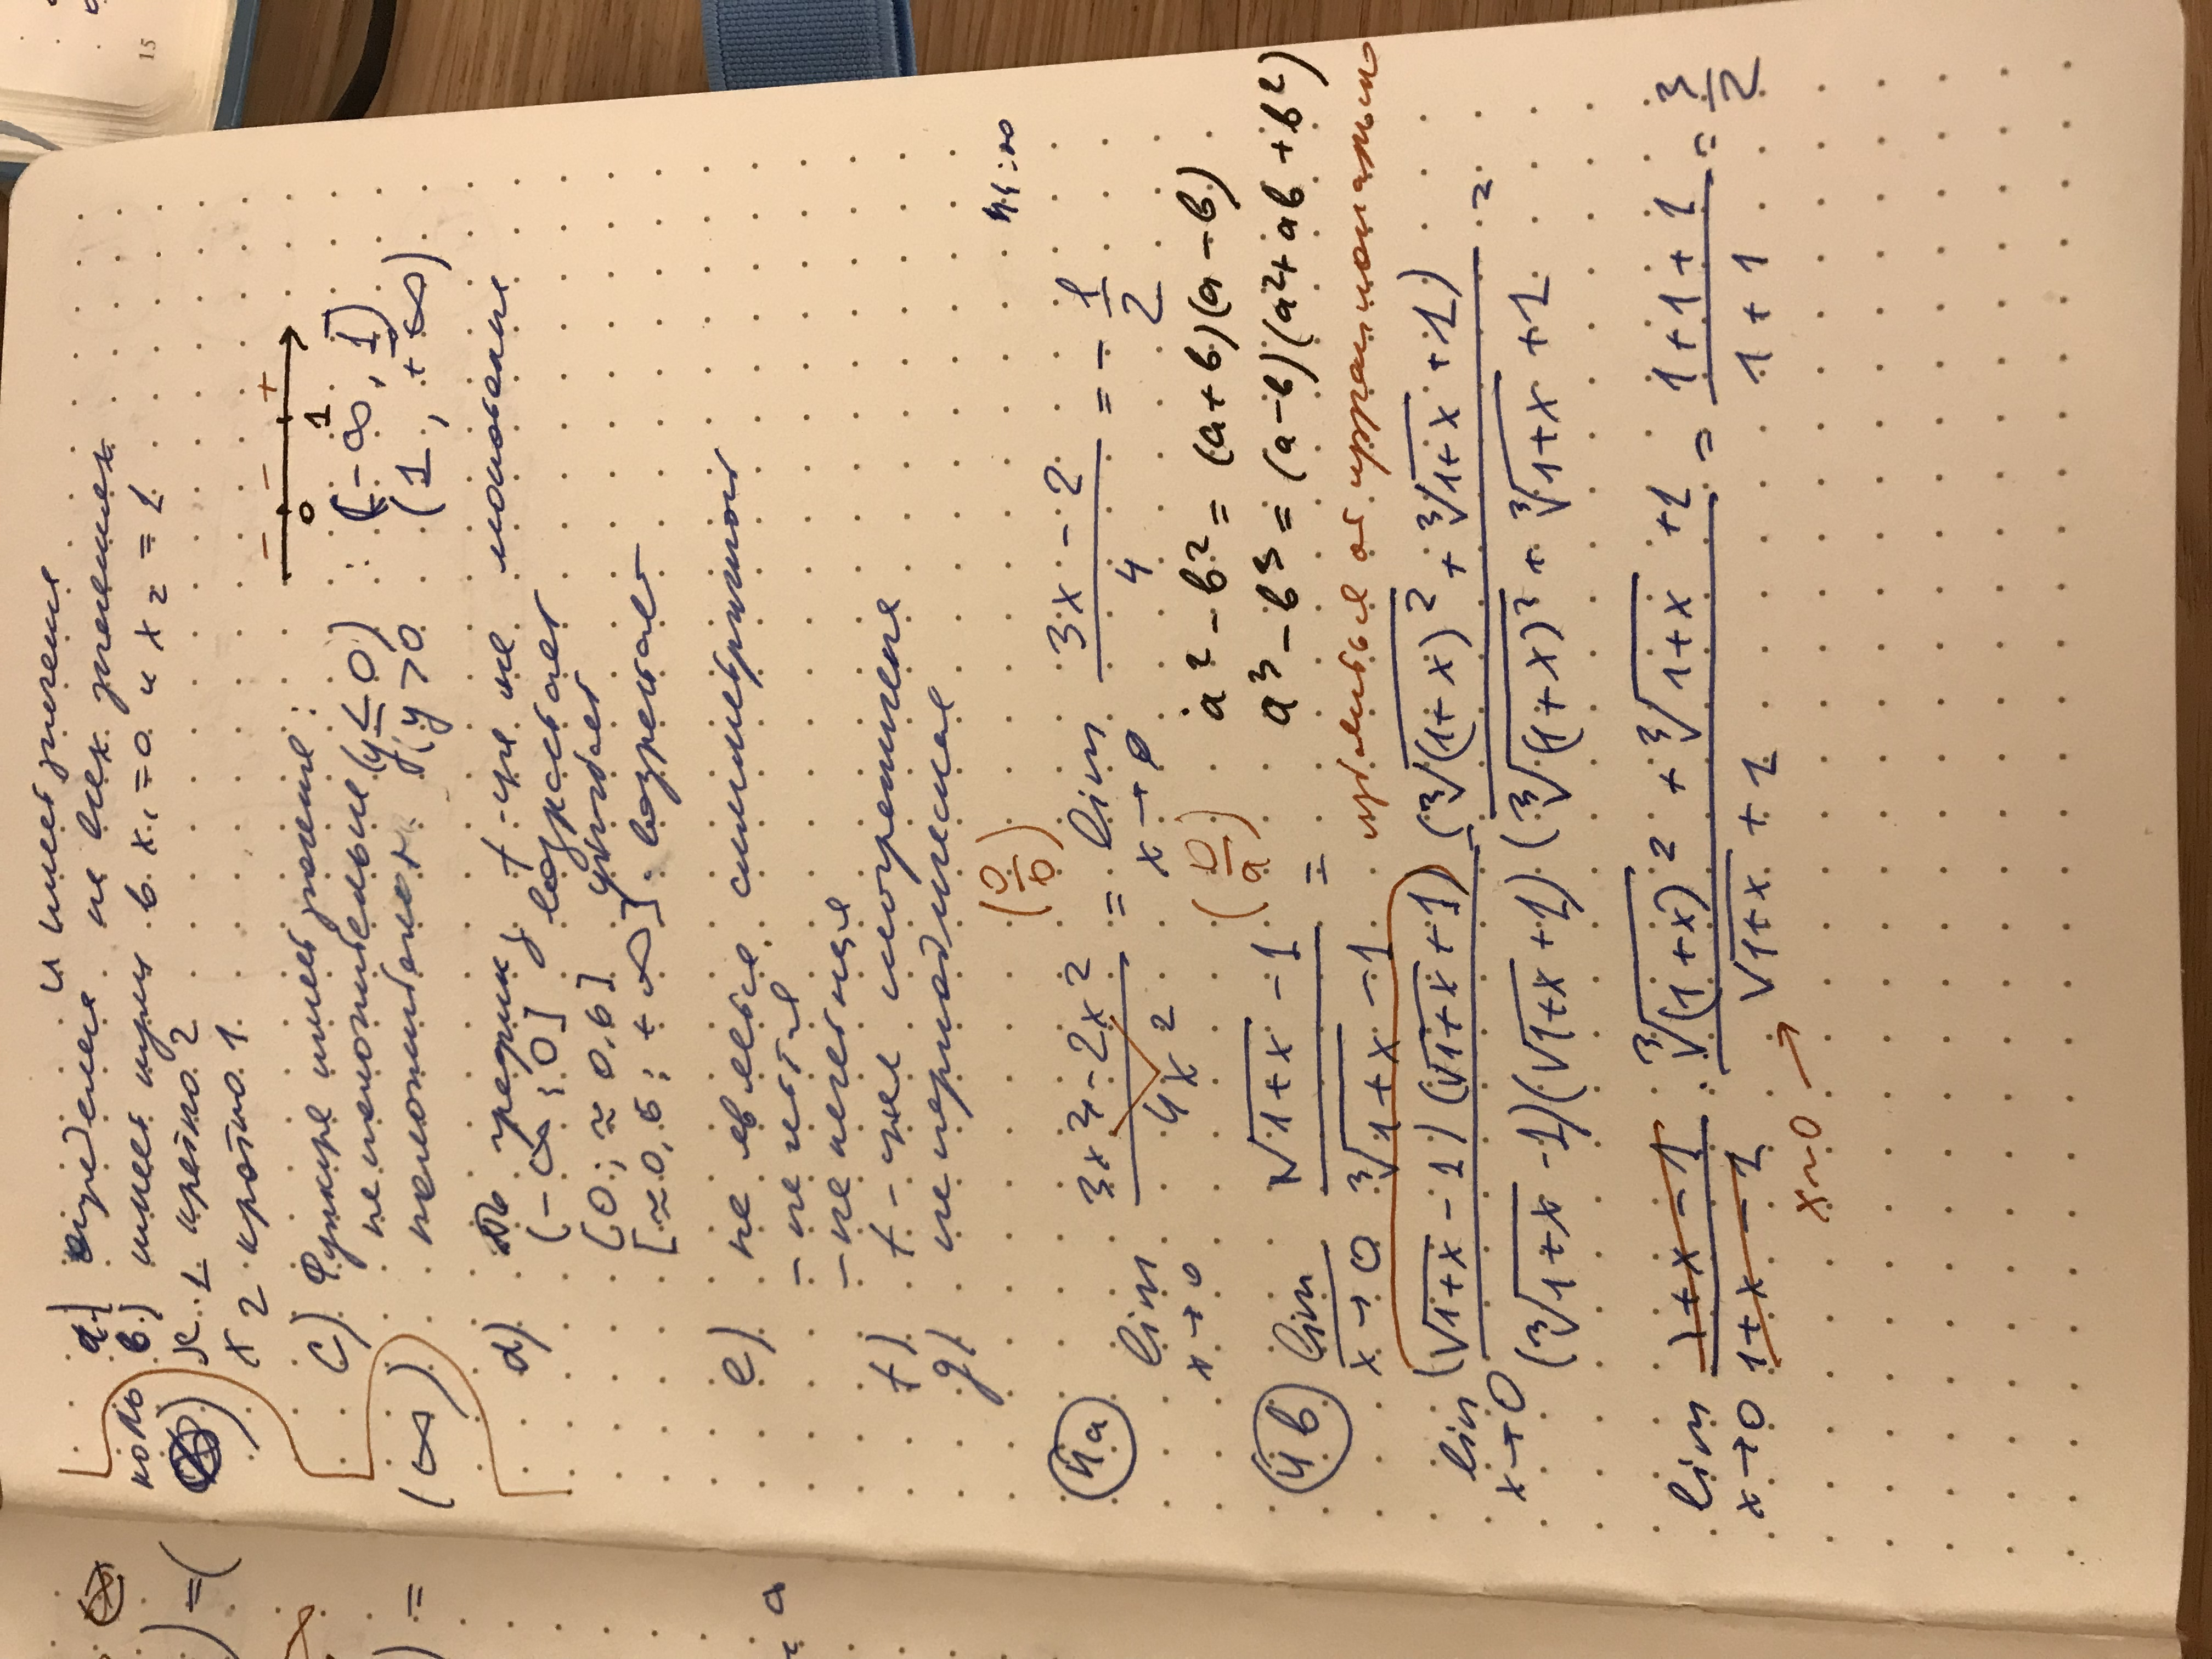 и имеет значения
a.) определена на всех значениях
коль b.) имеет нули в x₁ = 0 и x₂ = 1
) x 1 кратно 2
x 2 кратно 1
− − +
0 1
c) Функция имеет значения:
неположительные (y ≤ 0) : (−∞, 1)
(∞) положительн (y > 0 (1, +∞)
d) По графику f-ция не монотонна
(−∞; 0] возрастает
[0; ≈ 0,6] убывает
[≈0,6; +∞] возрастает
e) не является симметричной
- не четная
- не нечетная
f) f-ция неограничена
g) не периодическая
(0/0)
4a lim x→0 (3x³ − 2x²)/(4x²) = lim x→0 (3x − 2)/4 = − 1/2
a² − b² = (a + b)(a − b)
a³ − b³ = (a−b)(a² + ab + b²)
4b lim x→0 (√(1+x) − 1)/(∛(1+x) − 1) =
избавиться от иррациональн
lim x→0 ((√(1+x) − 1)(√(1+x) + 1)(∛(1+x)² + ∛(1+x) + 1))/((∛(1+x) − 1)(√(1+x) + 1)(∛(1+x)² + ∛(1+x) + 1 =
lim x→0 (1+x−1)/(1+x−1) · (∛(1+x)² + ∛(1+x) + 1)/(√(1+x) + 1) = (1+1+1)/(1+1) = 3/2
x~0 →
15